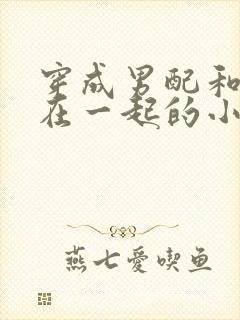 穿成男配和
在一起的小
燕七愛喫鱼